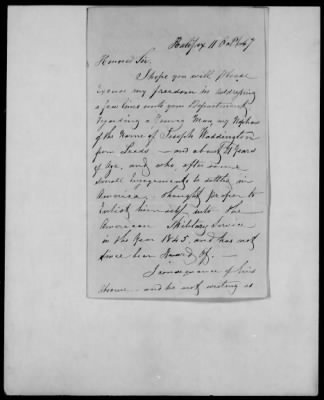 Halifax 11 Octr 1847
Honored Sir,
I hope you will please
excuse my freedom in addressing
a few lines unto your Department
regarding a Young Man, my Nephew
of the Name of Joseph Waddington
from Leeds — and about 21 Years
of Age, and who, after some
small engagements to settle in
America, thought proper to
Enlist himself into the
American Military Service
in the Year 1845, and has not
since been heard of. —
In consequence of his
absence — and he not writing as